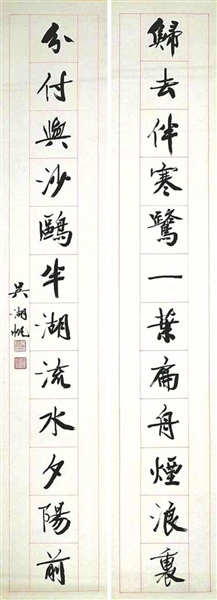 歸去伴寒鷺一葉扁舟煙浪裏
分付與沙鷗半湖流水夕陽前
吳湖帆